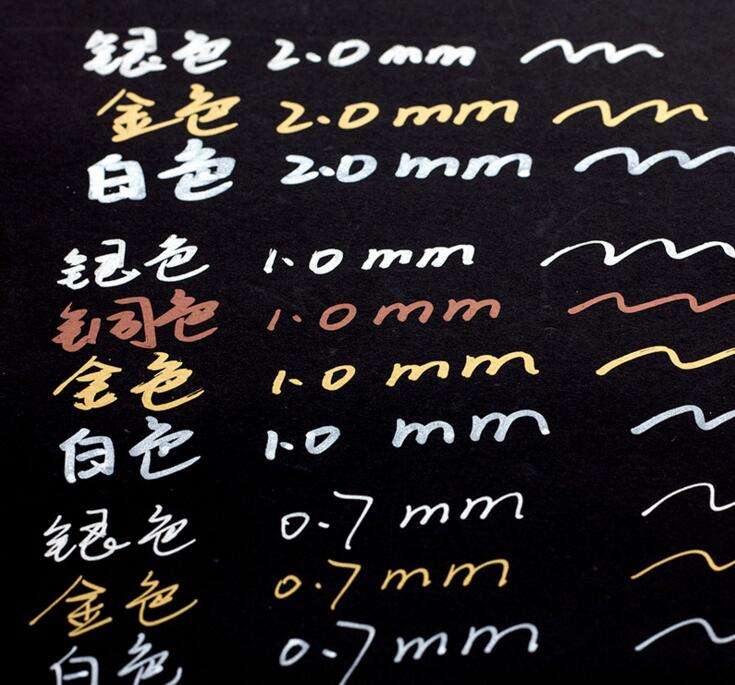 银色 2.0mm
金色 2.0mm
白色 2.0mm
银色 1.0mm
铜色 1.0mm
金色 1.0mm
白色 1.0mm
银色 0.7mm
金色 0.7mm
白色 0.7mm